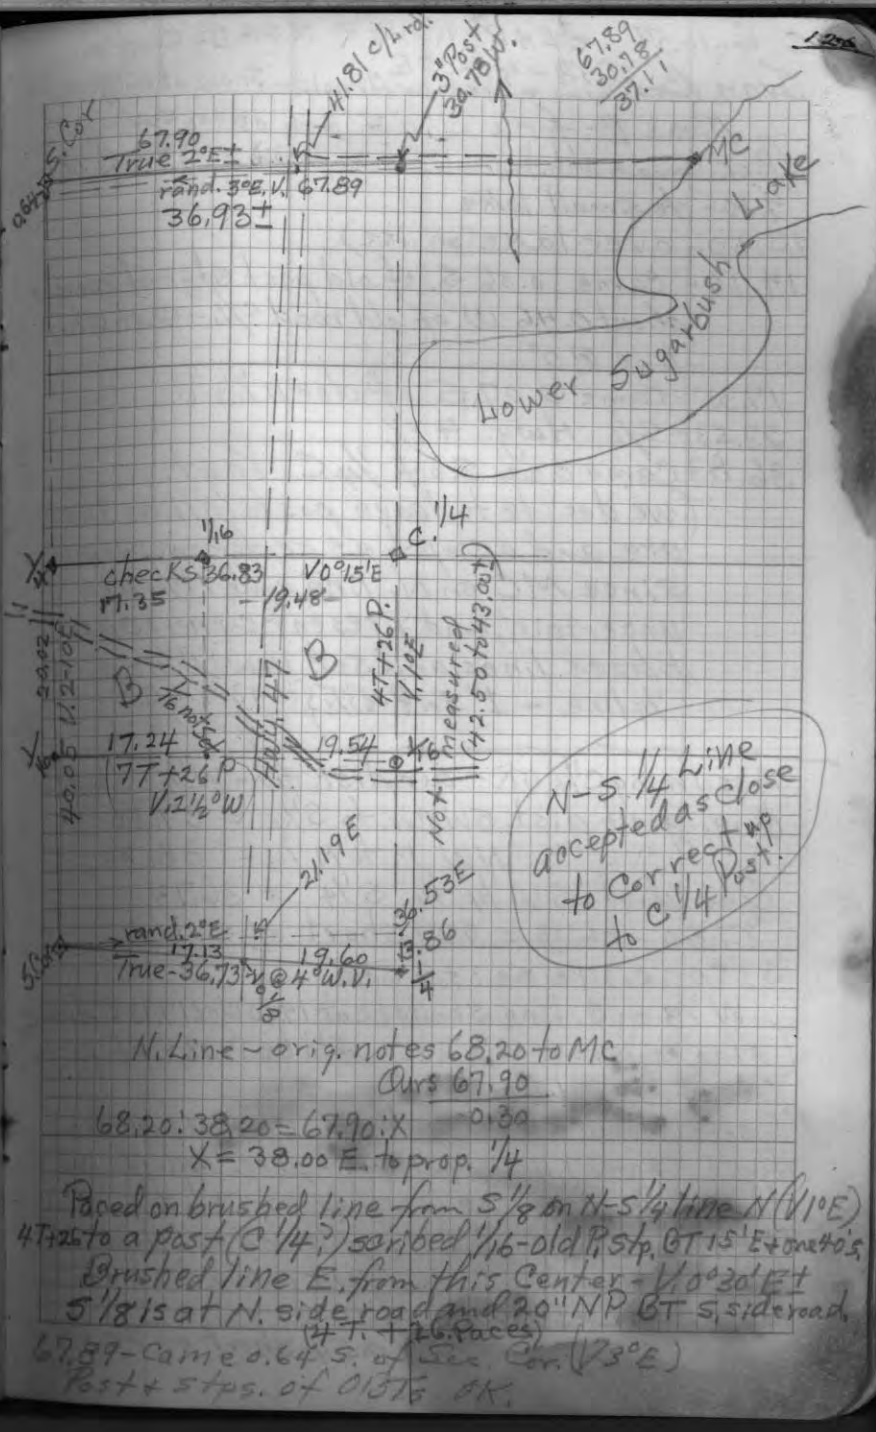 41.81 c/L rd.
3" Post
30.78 W.
67.89
30.78
37.11
S. Cor
67.90
True 2°E±
rand. 3°E.V. 67.89
36.93±
MC
Lower Sugarbush Lake
1/16
C. 1/4
1/4
checks 36.83 V0°15'E
17.35 - 19.48 -
20.02 V.2-10E
40.05
B
B
1/16 not set
Hwy. 47
4T+26P.
V.1°E
Not measured
(42.50 to 43.00±)
17.24
19.54
(7T+26P
V.2 1/2°W)
N-S 1/4 Line
accepted as close
to correct up
to C 1/4 Post.
21.19 E
36.53E
.86
1/4
S. Cor
rand. 2°E.
17.13 19.60
True-36.73 - @ 4° W.V.
1/8
N. Line - orig. notes 68.20 to MC
Ours 67.90
0.30
68.20 : 38.20 = 67.90 : X
X = 38.00 E. to prop. 1/4
Paced on brushed line from S 1/8 on N-S 1/4 line N (V1°E)
4T+26 to a post (C 1/4?) scribed 1/16 - old P. stp. BT 15'E + one 40's.
Brushed line E. from this Center - V.0°30'E±
S 1/8 is at N. side road and 20" NP BT S. side road.
(4 T. + 26 Paces)
67.89 - Came 0.64 S. of Sec. Cor. (V3°E)
Post & stps. of O BTs OK.